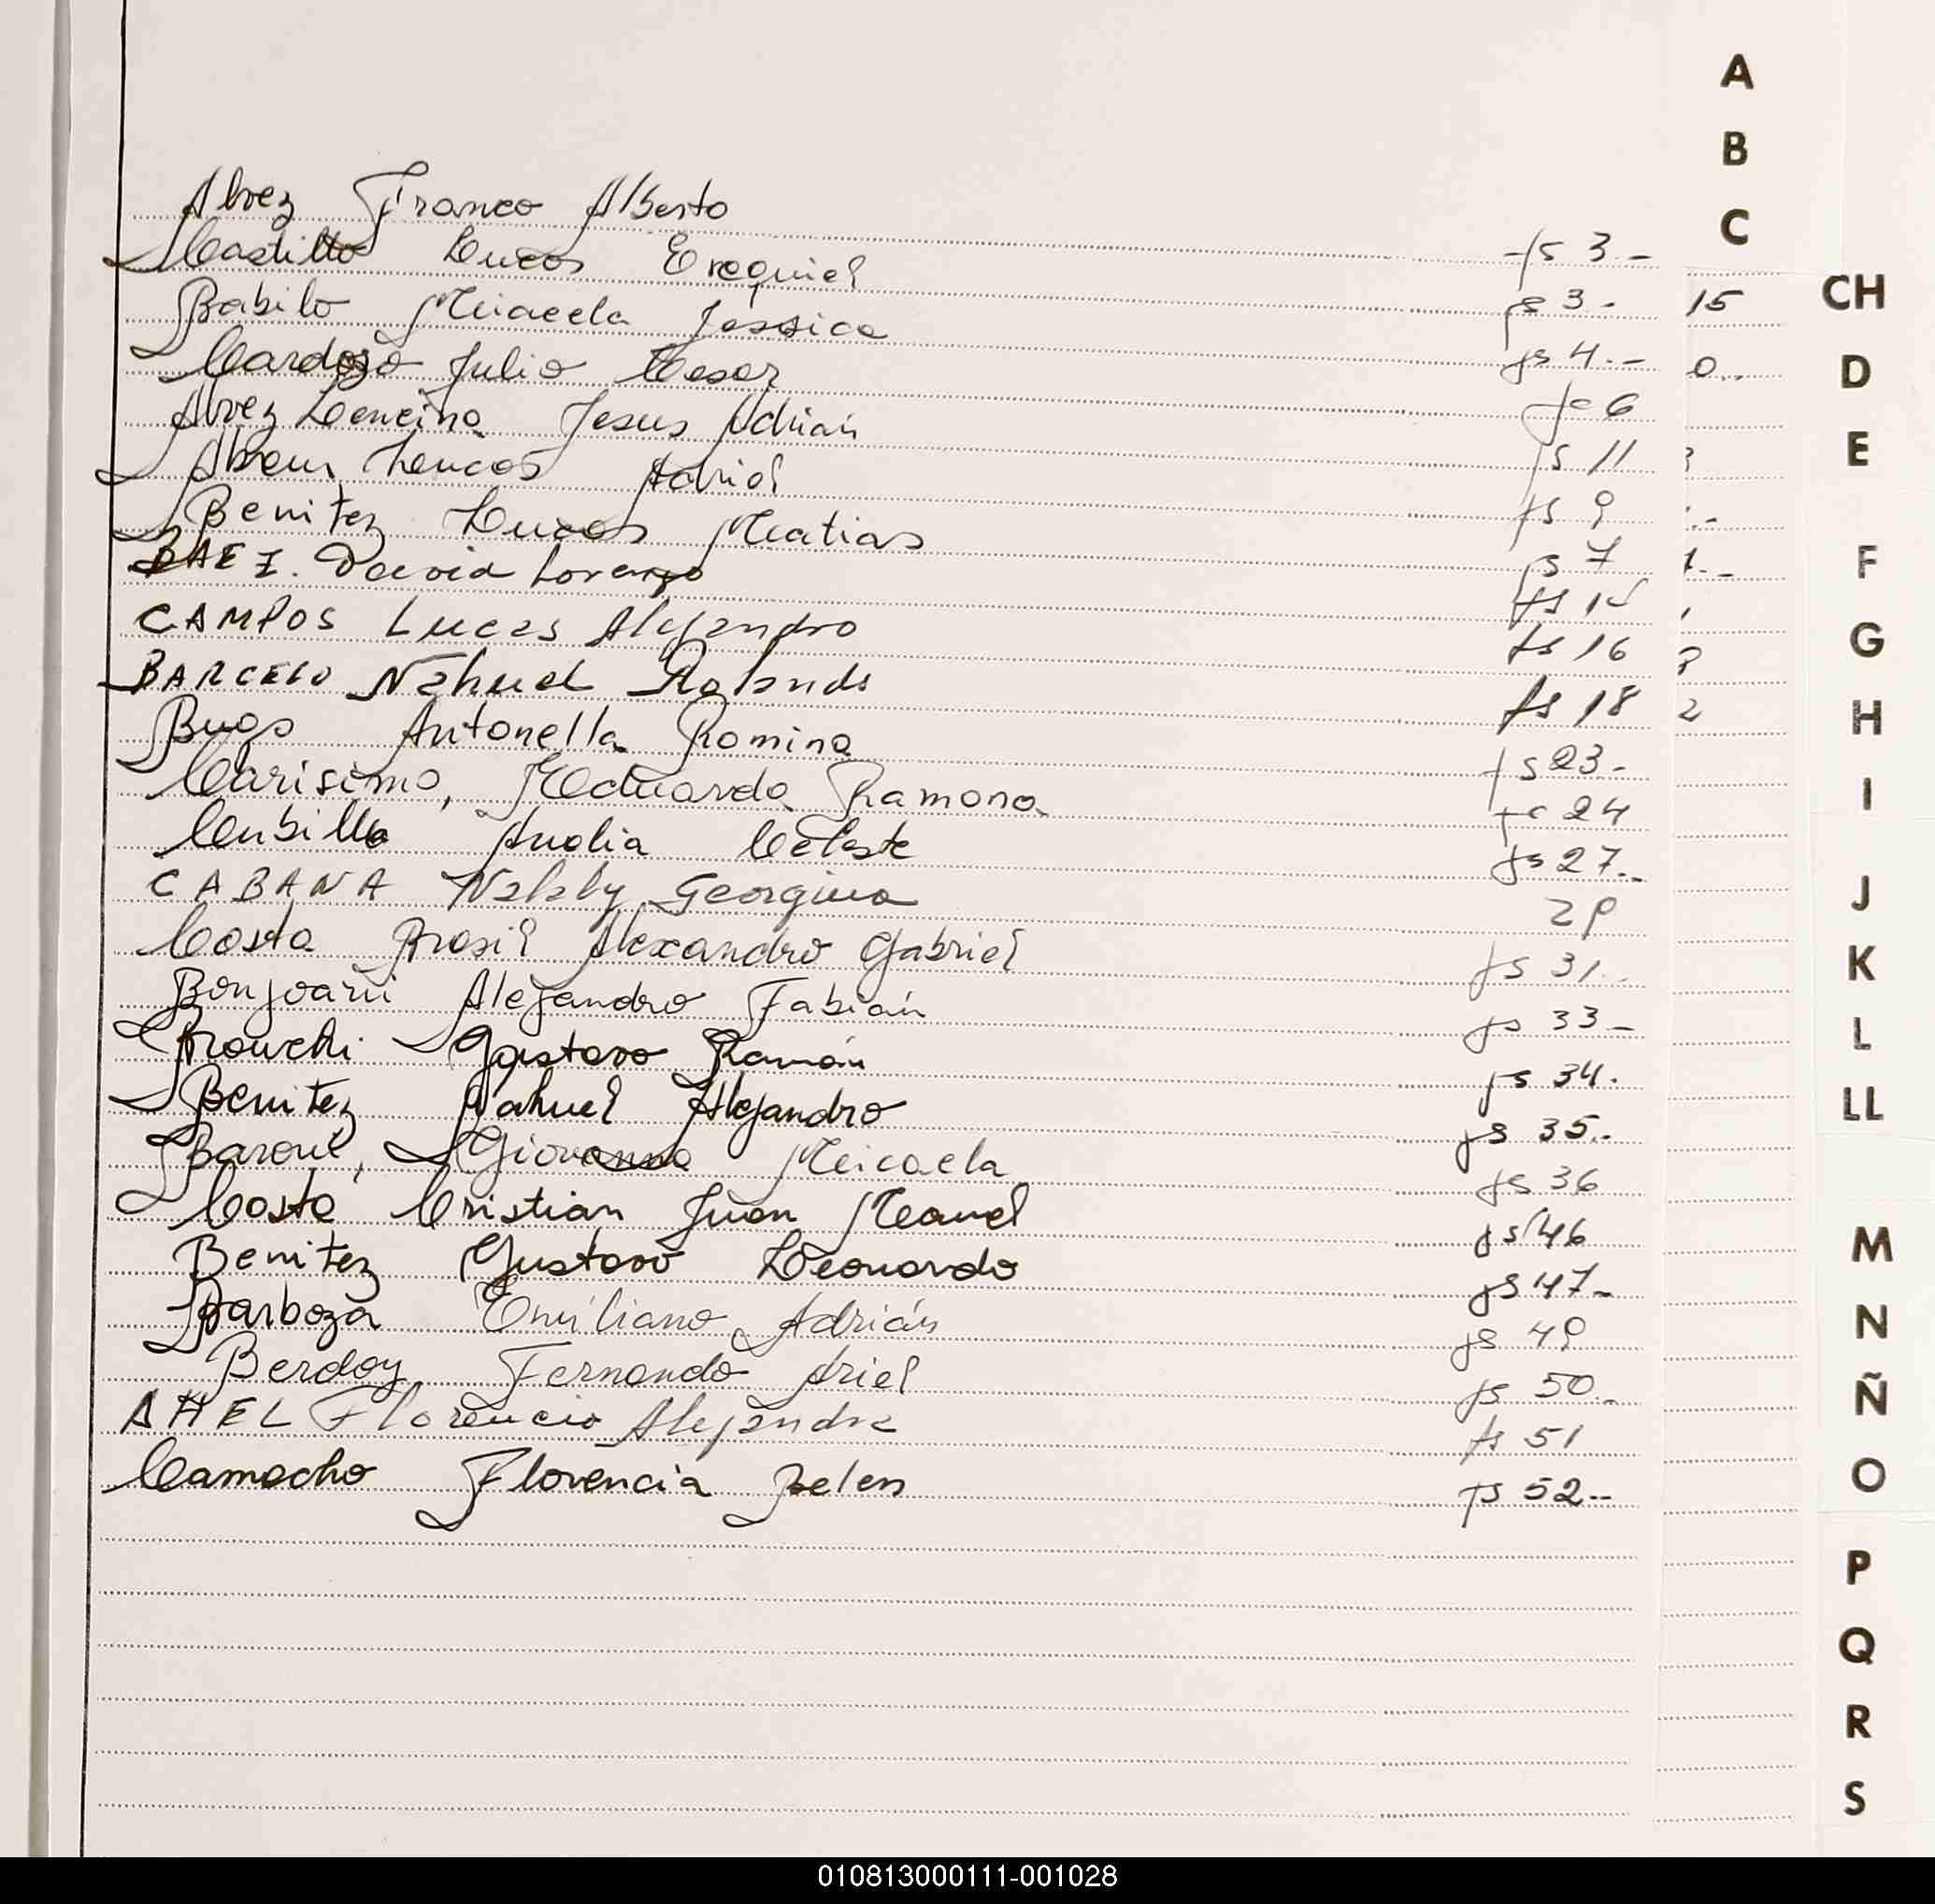 A
B
C
Alvez Franco Alberto fs 3.-
Castillo Lucas Ezequiel fs 3.- 15
CH
Babilo Micaela Jessica fs 4.- 0..
Cardozo Julio Cesar fs 6
D
Alvez Lencina Jesus Adrián fs 11
E
Abreu Lucas Adriel fs 9
Benitez Lucas Matias fs 7
BAEZ. David Lorenzo fs 15
F
CAMPOS Lucas Alejandro fs 16
G
BARCELO Nahuel Rolando fs 18 2
H
Bugs Antonella Romina fs 23.-
Carisimo, Eduarda Ramona fs 24
I
Cubilla Analia Celeste fs 27..
CABANA Nataly Georgina 29
J
Costa Brasil Alexandro Gabriel fs 31..
K
Bonjoarni Alejandro Fabián fs 33-
L
Gustavo Ramón fs 34.
LL
Benitez Nahuel Alejandro fs 35..
Baroni, Giovanna Micaela fs 36
Costa Cristian Juan Manuel fs 46
M
Benitez Gustavo Leonardo fs 47-
Barboza Emiliano Adrián fs 49
N
Berdoy Fernando Ariel fs 50..
Ñ
AHEL Florencia Alejandra fs 51
Camacho Florencia Belen fs 52..
O
P
Q
R
S
010813000111-001028